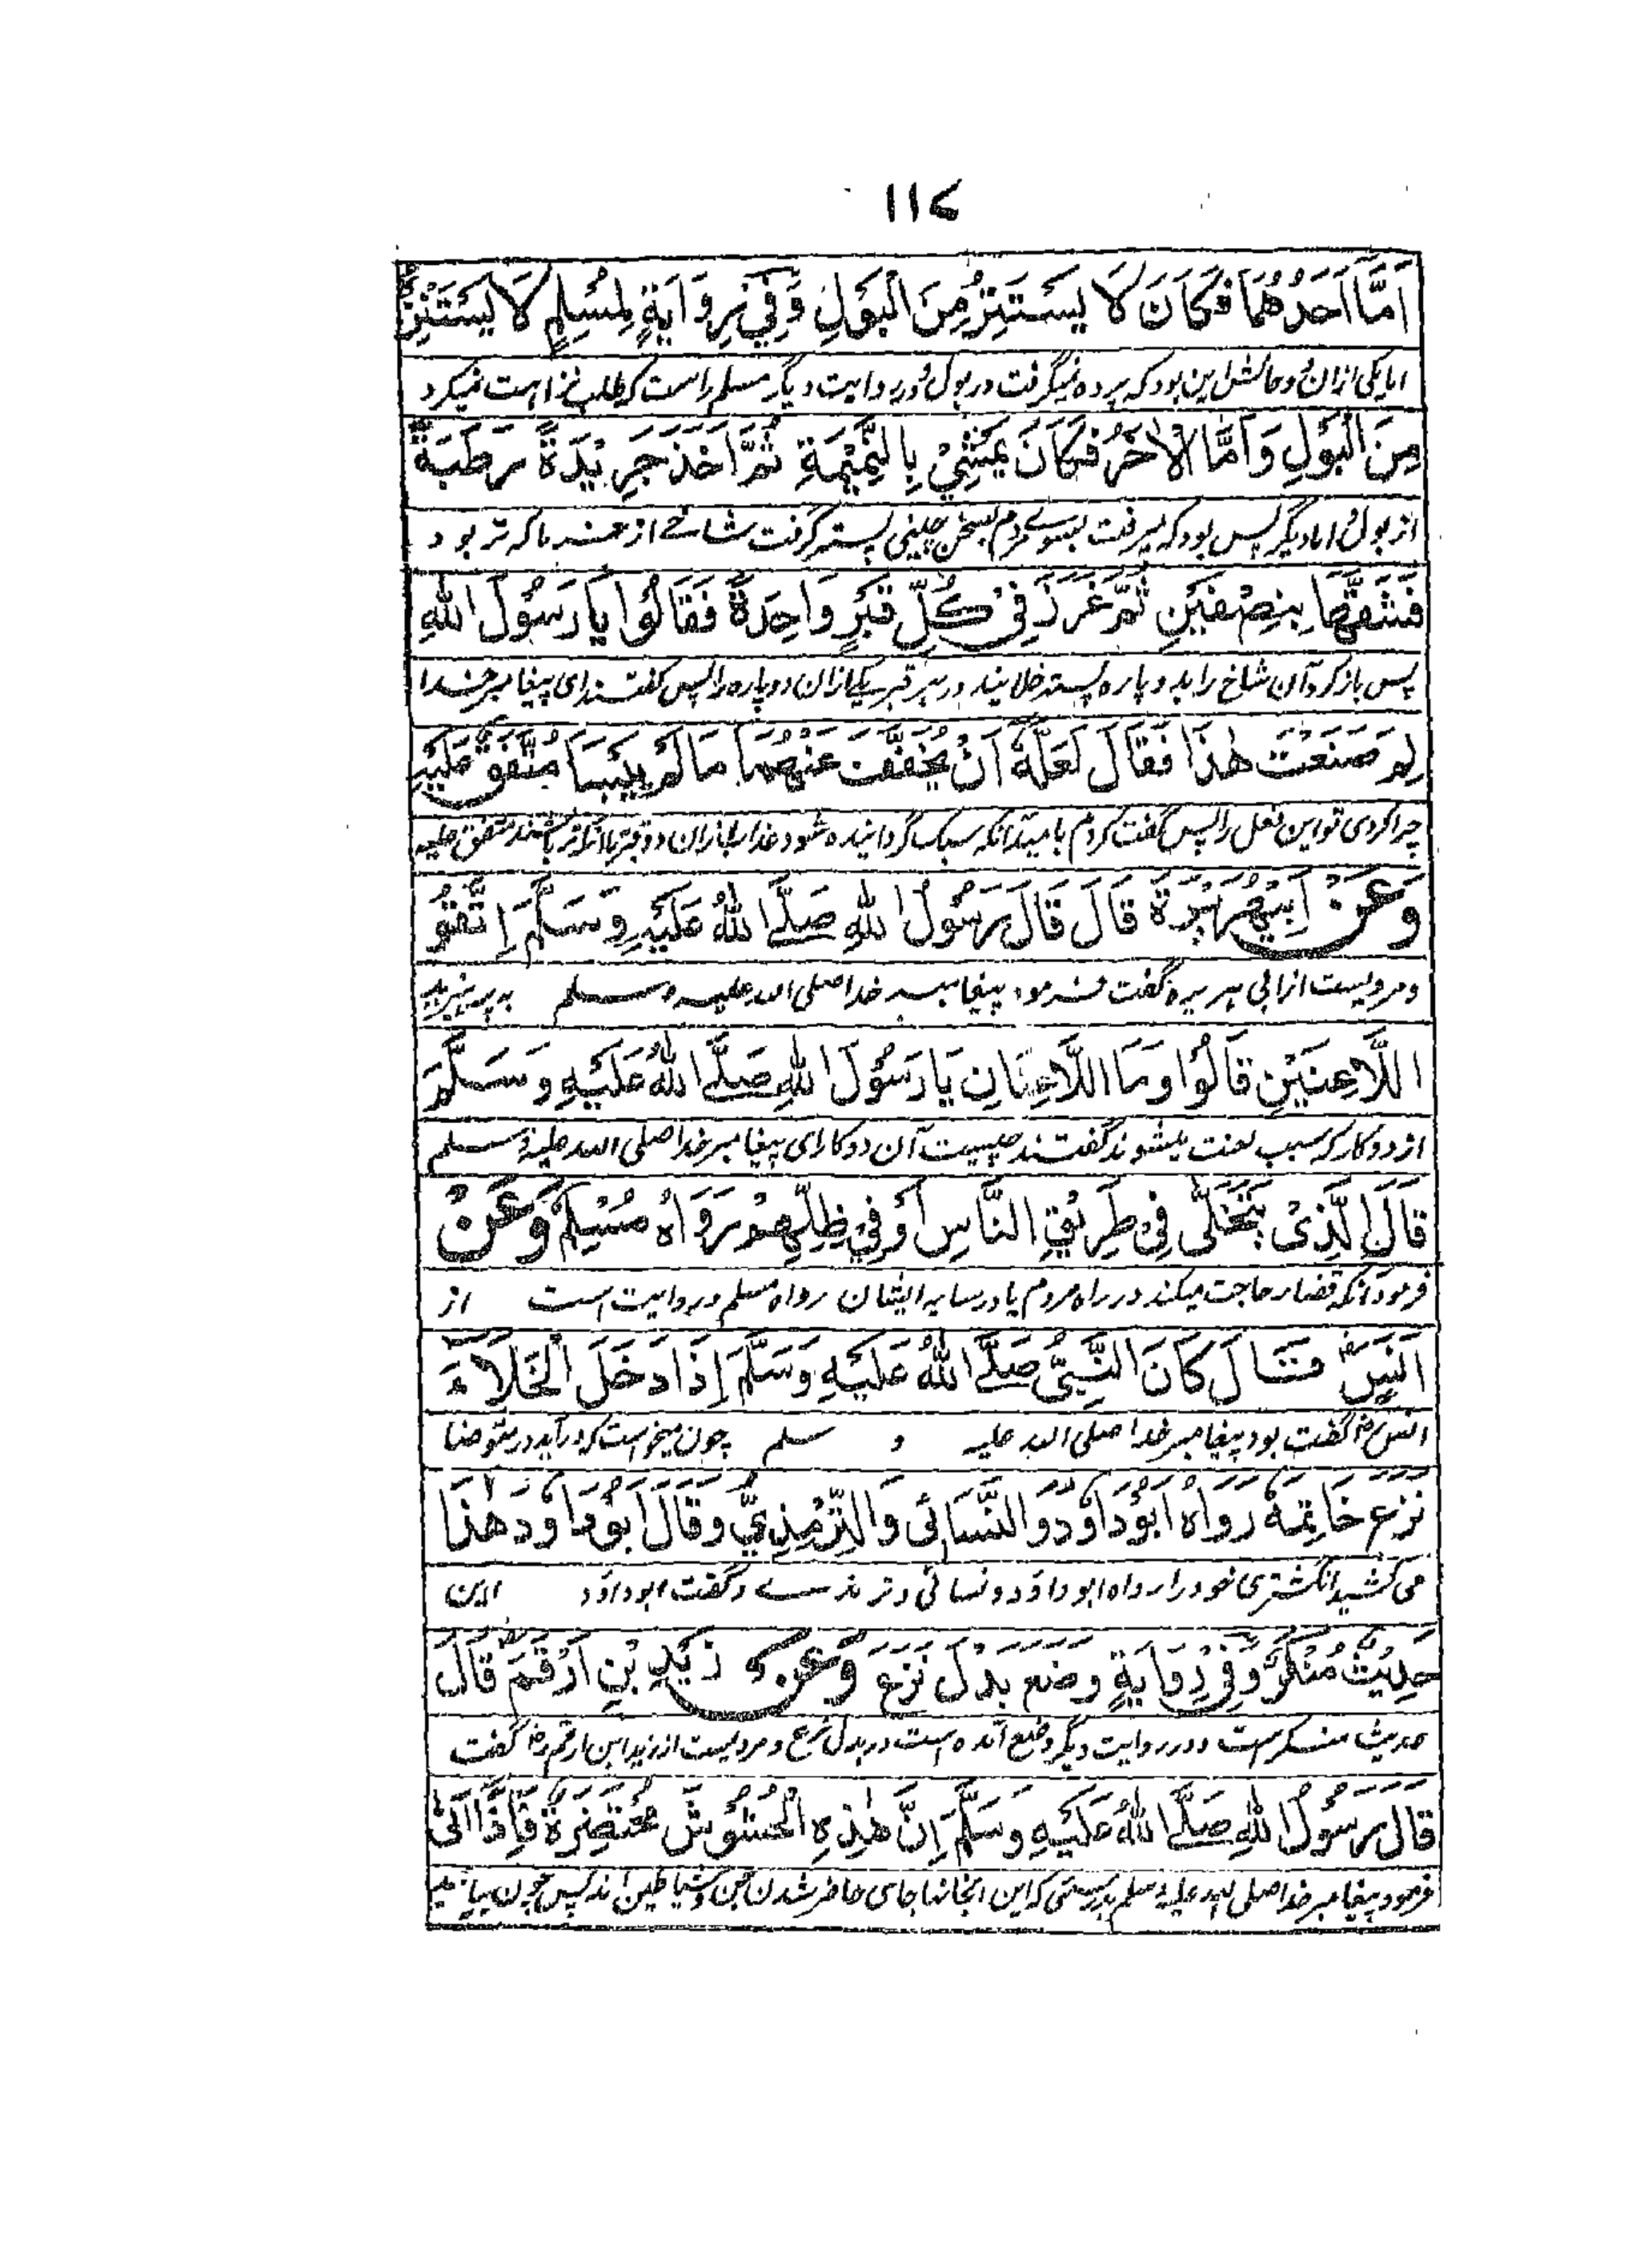 ۱۱۷
اَمَّا اَحَدُهُمَا فَكَانَ لَا يَسْتَتِرُ مِنَ الْبَوْلِ وَفِيْ رِوَايَةٍ لِمُسْلِمٍ لَا يَسْتَنْزِهُ
اما یکی ازان دو حالش این بود که پرده نمیگرفت در بول و در روایت دیگر مسلم راست که طلب نزاهت نمیکرد
مِنَ الْبَوْلِ وَاَمَّا الْاٰخَرُ فَكَانَ يَمْشِيْ بِالنَّمِيْمَةِ ثُمَّ اَخَذَ جَرِيْدَةً رَطَبَةً
از بول و اما دیگر پس بود که میرفت بسوے مردم بسخن چینی پستر گرفت شاخے از خرما که تر بود
فَشَقَّهَا بِنِصْفَيْنِ ثُمَّ غَرَزَ فِيْ كُلِّ قَبْرٍ وَاحِدَةً فَقَالُوْا يَا رَسُوْلَ اللهِ
پس باز کرد آن شاخ را بدو پاره پستر خلانید در هر قبر یکے ازان دو پاره را پس گفتند ای پیغامبر خدا
لِمَ صَنَعْتَ هٰذَا فَقَالَ لَعَلَّهٗ اَنْ يُخَفَّفَ عَنْهُمَا مَا لَمْ يَيْبَسَا مُتَّفَقٌ عَلَيْهِ
چرا کردی تو این فعل را پس گفت کردم بامید آنکه سبک گردانیده شود عذاب ازان دو قبر تا آنکه تر باشند متفق علیه
وَعَنْ اَبِيْ هُرَيْرَةَ قَالَ قَالَ رَسُوْلُ اللهِ صَلَّے اللهُ عَلَيْهِ وَسَلَّمَ اِتَّقُو
و مرویست از ابی هریره گفت فرمود پیغامبر خدا صلی الله علیه و سلم به پرهیزید
اللَّاعِنَيْنِ قَالُوْا وَمَا اللَّاعِنَانِ يَا رَسُوْلَ اللهِ صَلَّے اللهُ عَلَيْهِ وَسَلَّمَ
از دو کار که سبب لعنت میشوند گفتند چیست آن دو کار ای پیغامبر خدا صلی الله علیه و سلم
قَالَ الَّذِيْ يَتَخَلّٰى فِيْ طَرِيْقِ النَّاسِ اَوْ فِيْ ظِلِّهِمْ رَوَاهُ مُسْلِمٌ وَعَنْ
فرمود آنکه قضاء حاجت میکند در راه مردم یا در سایه ایشان رواه مسلم و روایت است از
اَنَسٍ رض قَالَ كَانَ النَّبِيُّ صَلَّے اللهُ عَلَيْهِ وَسَلَّمَ اِذَا دَخَلَ الْخَلَاءَ
انس رض گفت بود پیغامبر خدا صلی الله علیه و سلم چون میخواست که در آید در متوضا
نَزَعَ خَاتِمَهٗ رَوَاهُ اَبُوْدَاوٗدَ وَالنَّسَائِى وَالتِّرْمِذِيُّ وَقَالَ اَبُوْدَاوٗدَ هٰذَا
می کشید انگشتری خود را رواه ابو داؤد و نسائی و ترمذے و گفت ابو داؤد این
حَدِيْثٌ مُنْكَرٌ وَفِيْ رِوَايَةٍ وضع بدل نَزَعَ وَعَنْ زَيْدِ بْنِ اَرْقَمَ رض قَالَ
حدیث منکر ست و در روایت دیگر وضع آمده است در بدل نزع و مرویست از زید ابن ارقم رض گفت
قَالَ رَسُوْلُ اللهِ صَلَّے اللهُ عَلَيْهِ وَسَلَّمَ اِنَّ هٰذِهِ الْحُشُوْشَ مُحْتَضَرَةٌ فَاِذَا اَتٰى
فرمود پیغامبر خدا صلی الله علیه و سلم بدرستی که این جای حاضر شدن جن و شیاطین اند پس چون بیاید